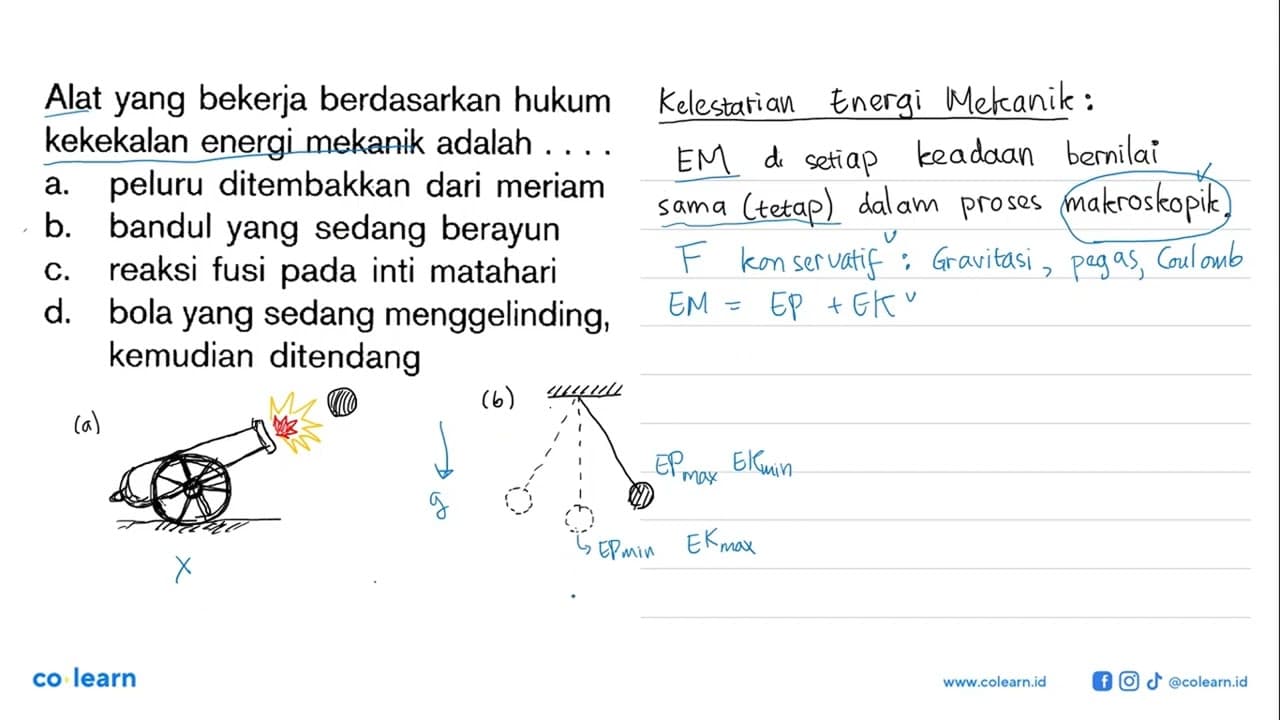 Alat yang bekerja berdasarkan hukum
kekekalan energi mekanik adalah ....
a. peluru ditembakkan dari meriam
b. bandul yang sedang berayun
c. reaksi fusi pada inti matahari
d. bola yang sedang menggelinding,
kemudian ditendang
(a)
X
g
(b)
EPmax EKmin
EPmin EKmax
Kelestarian Energi Mekanik:
EM di setiap keadaan bernilai
sama (tetap) dalam proses makroskopik.
F konservatif : Gravitasi, pegas, Coulomb
EM = EP + EK
co learn
www.colearn.id
@colearn.id